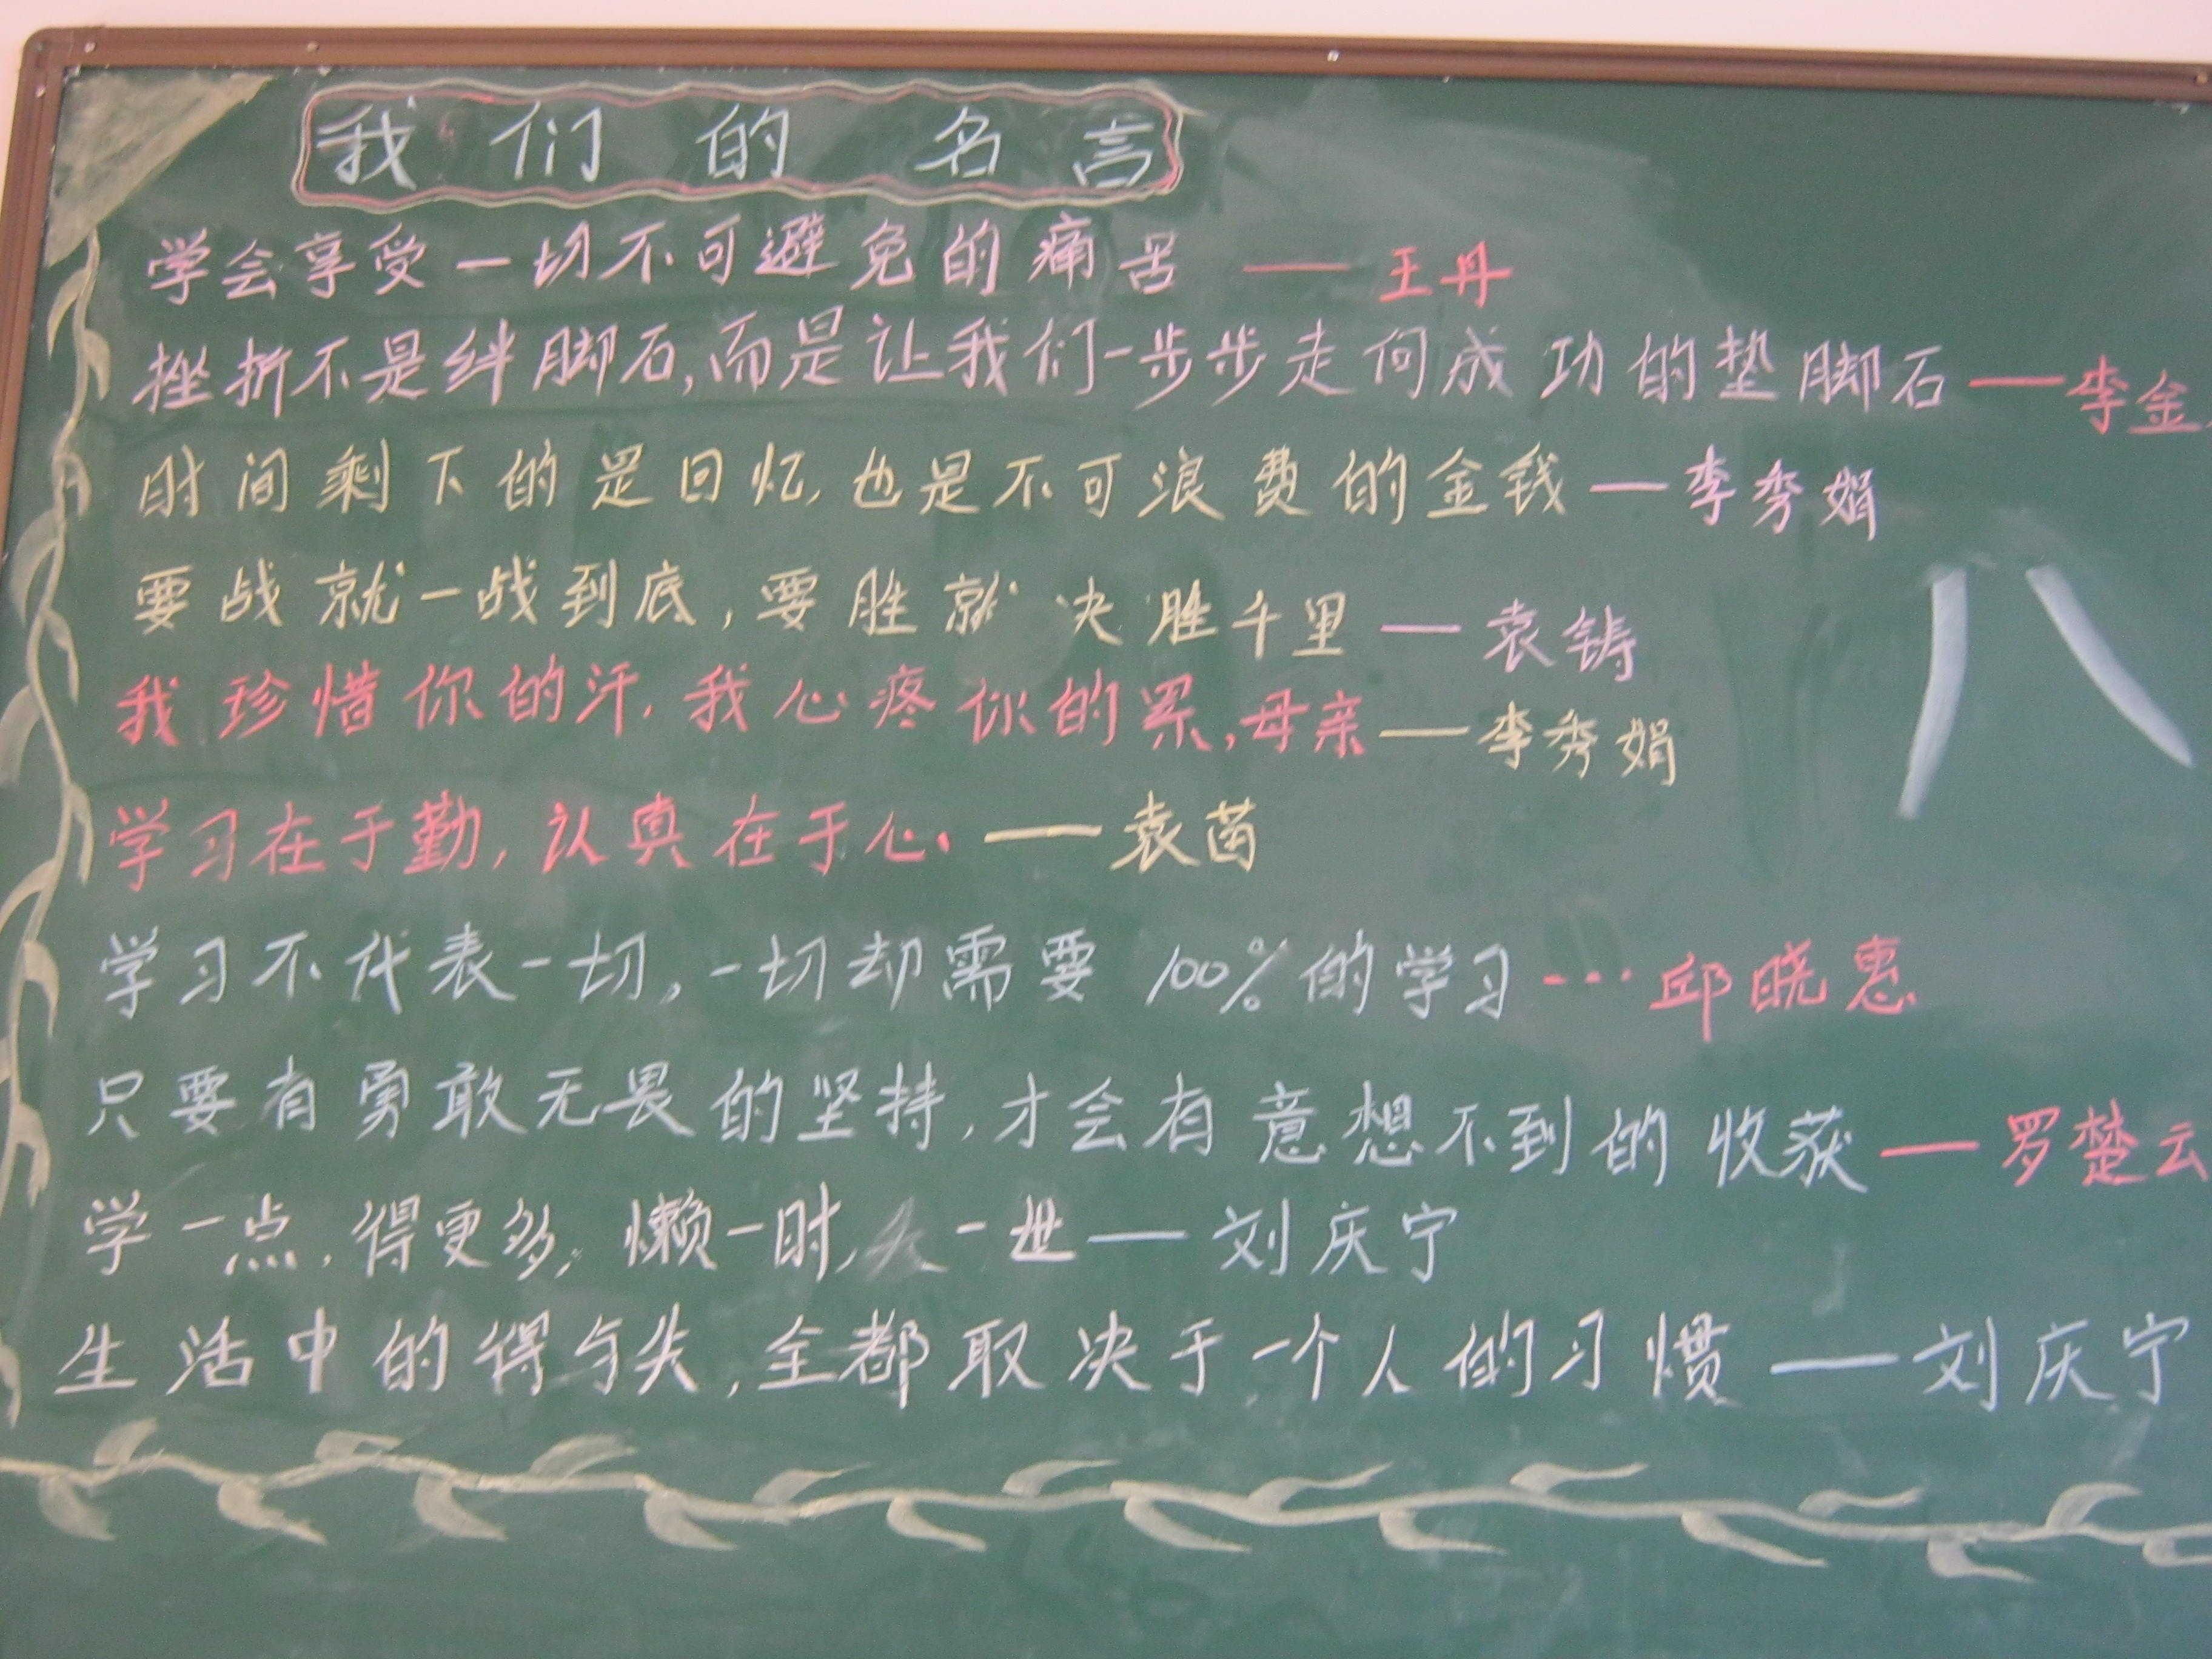 我们的名言
学会享受一切不可避免的痛苦 —— 王丹
挫折不是绊脚石,而是让我们一步步走向成功的垫脚石——李金
时间剩下的是回忆,也是不可浪费的金钱—李秀娟
要战就一战到底,要胜就决胜千里—袁铸
我珍惜你的汗,我心疼你的累,母亲——李秀娟
学习在于勤,认真在于心、——袁茵
学习不代表一切,一切却需要100%的学习…邱晓惠
只要有勇敢无畏的坚持,才会有意想不到的收获—罗楚云
学一点,得更多;懒一时,一世——刘庆宁
生活中的得与失,全都取决于一个人的习惯——刘庆宁
八